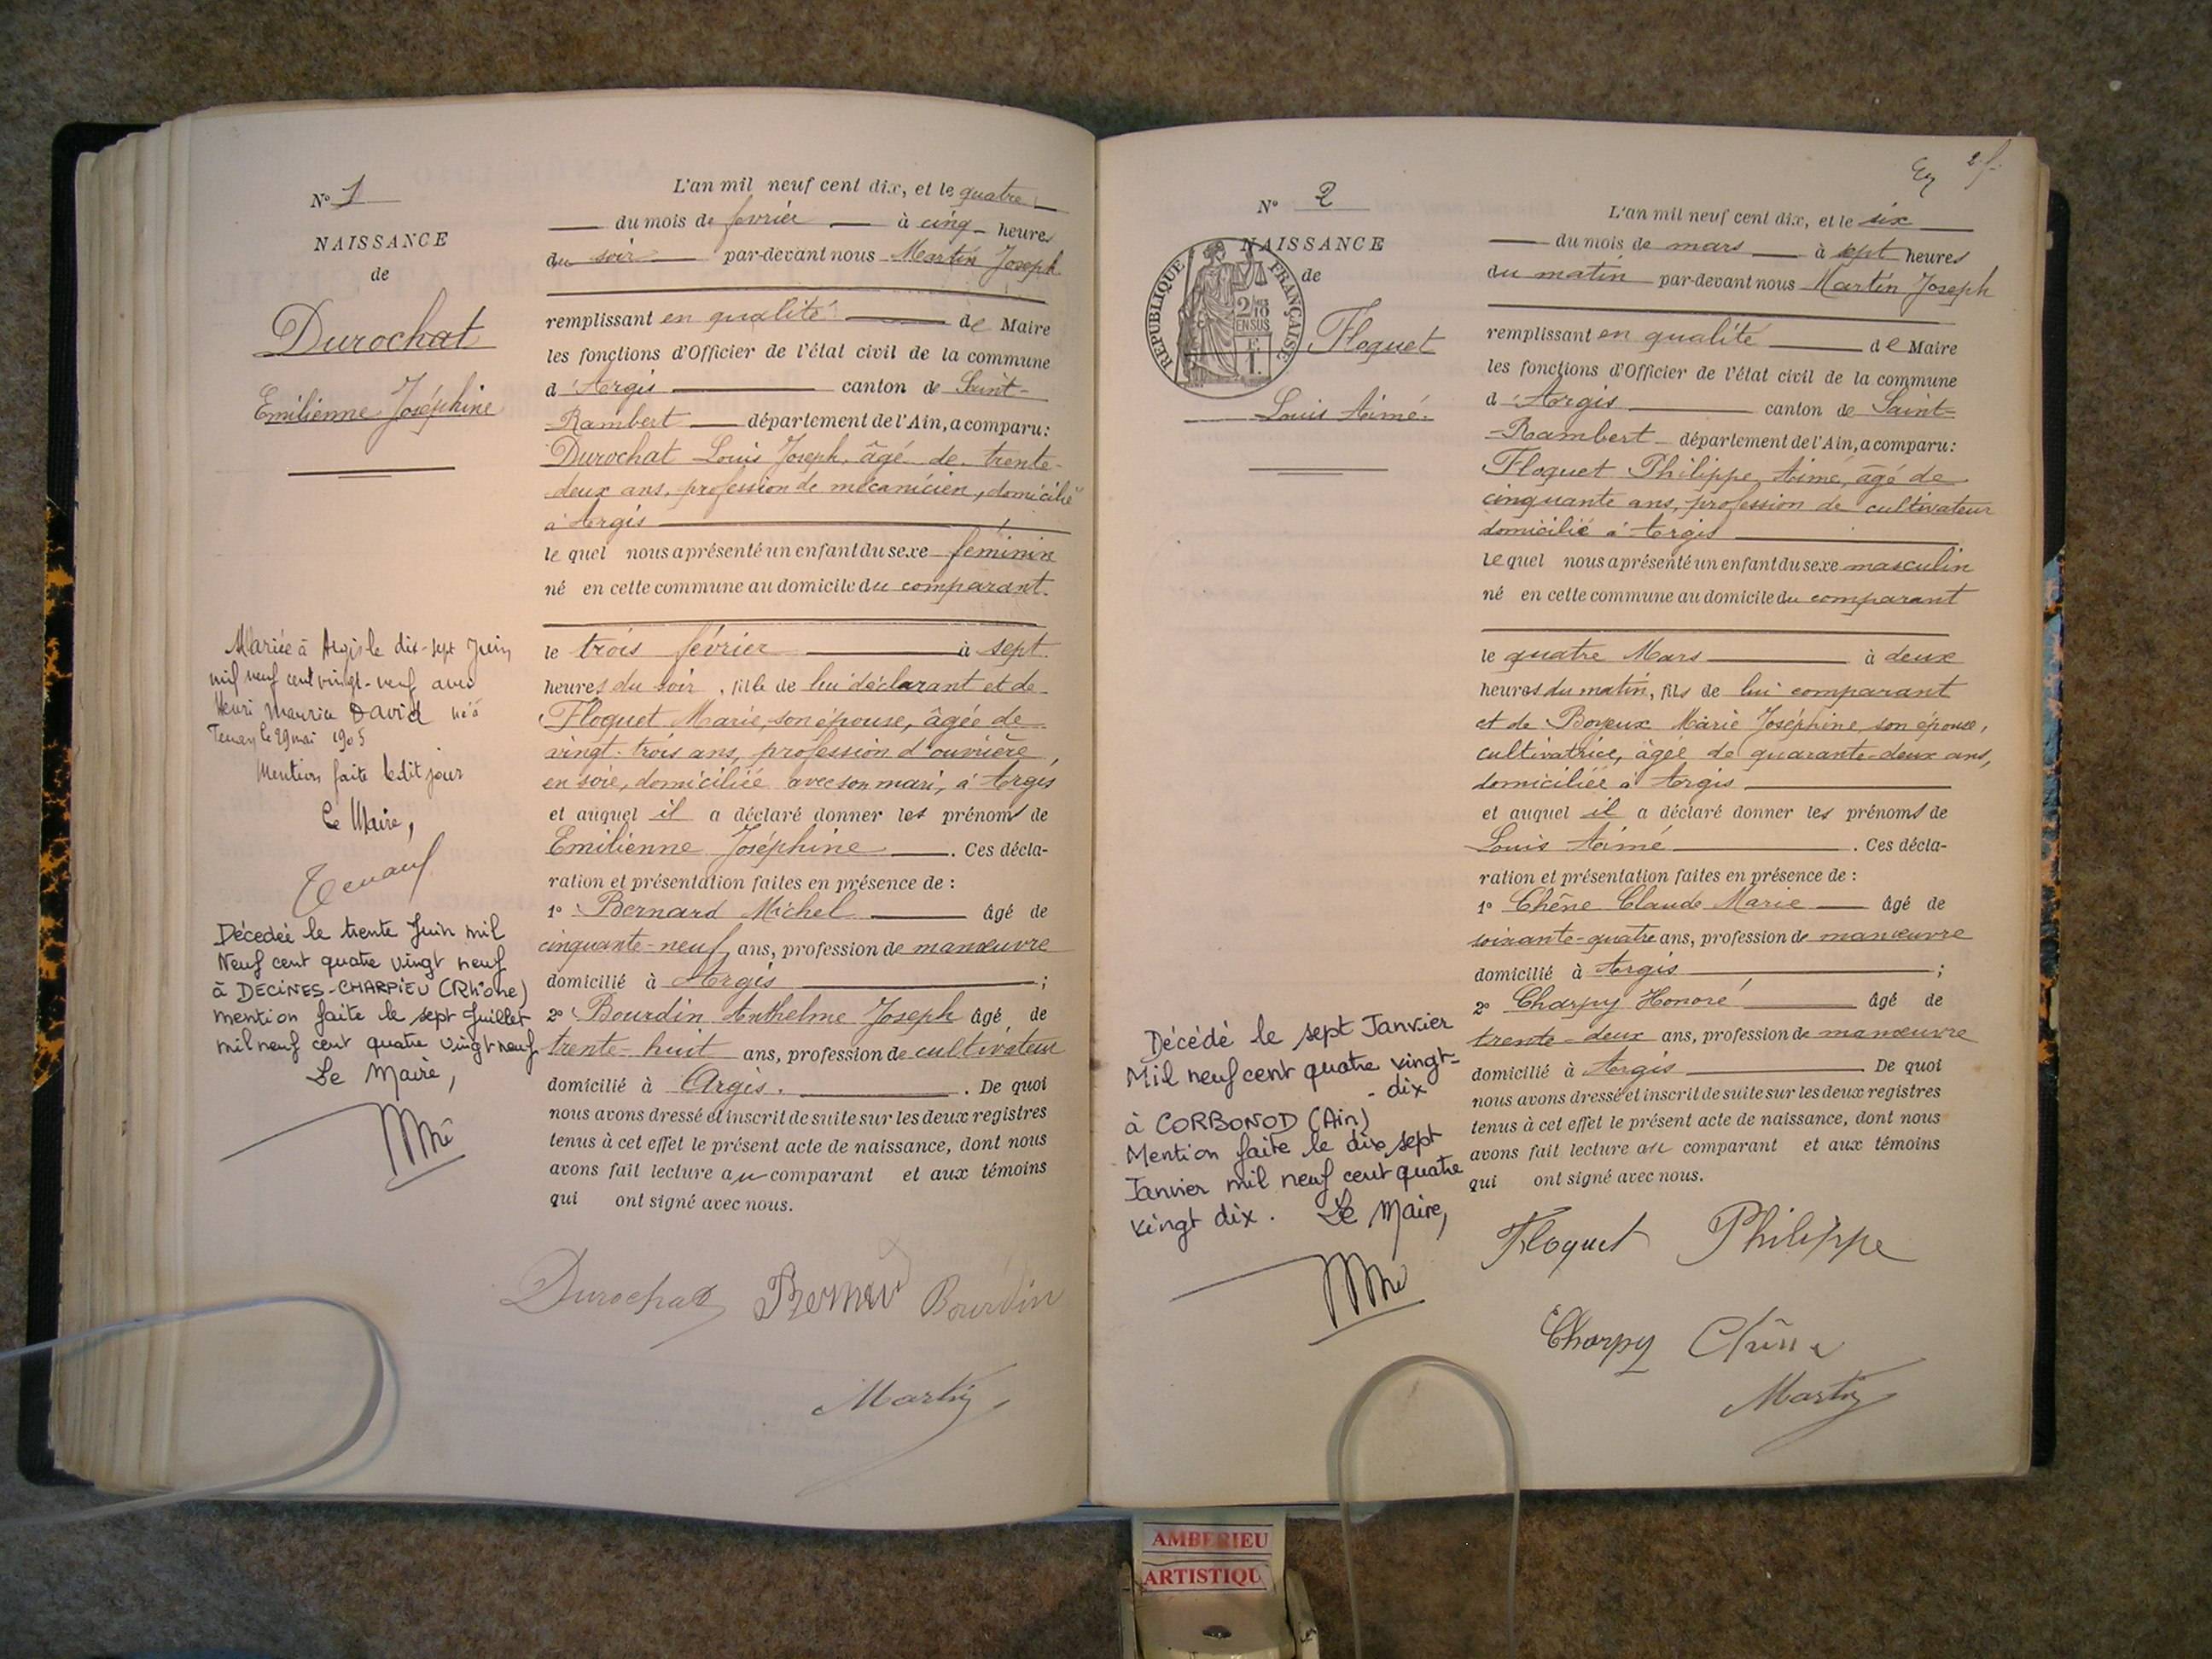 N° 1
NAISSANCE
de
Durochat
Emilienne Joséphine
Mariée à Argis le dix-sept Juin
mil neuf cent vingt-neuf avec
Henri Maurice David né à
Tenay le 29 mai 1905
Mention faite ledit jour
Le Maire,
Décédée le trente Juin mil
Neuf cent quatre vingt neuf
à DECINES-CHARPIEU (Rhône)
mention faite le sept Juillet
mil neuf cent quatre vingt neuf
Le Maire,
L'an mil neuf cent dix, et le quatre
du mois de février à cinq heures
du soir par-devant nous Martin Joseph
remplissant en qualité de Maire
les fonctions d'Officier de l'état civil de la commune
d'Argis canton de Saint-
Rambert département de l'Ain, a comparu :
Durochat Louis Joseph, âgé de trente-
deux ans, profession de mécanicien, domicilié
à Argis
le quel nous a présenté un enfant du sexe féminin
né en cette commune au domicile du comparant.
le trois février à sept
heures du soir, fille de lui déclarant et de
Floquet Marie, son épouse, âgée de
vingt-trois ans, profession d'ouvrière
en soie, domiciliée avec son mari, à Argis
et auquel il a déclaré donner les prénoms de
Emilienne Joséphine. Ces décla-
ration et présentation faites en présence de :
1° Bernard Michel âgé de
cinquante-neuf ans, profession de manœuvre
domicilié à Argis ;
2° Bourdin Anthelme Joseph âgé de
trente-huit ans, profession de cultivateur
domicilié à Argis. . De quoi
nous avons dressé et inscrit de suite sur les deux registres
tenus à cet effet le présent acte de naissance, dont nous
avons fait lecture au comparant et aux témoins
qui ont signé avec nous.
Durochat Bernard Bourdin
Martin
2 f.
N° 2
NAISSANCE
de
REPUBLIQUE FRANÇAISE
2/10
EN SUS
Floquet
Louis Aimé.
Décédé le sept Janvier
Mil neuf cent quatre vingt-
- dix
à CORBONOD (Ain)
Mention faite le dix sept
Janvier mil neuf cent quatre
vingt dix. Le Maire,
L'an mil neuf cent dix, et le six
du mois de mars à sept heures
du matin par-devant nous Martin Joseph
remplissant en qualité de Maire
les fonctions d'Officier de l'état civil de la commune
d'Argis canton de Saint-
-Rambert département de l'Ain, a comparu :
Floquet Philippe Aimé, âgé de
cinquante ans, profession de cultivateur
domicilié à Argis
Le quel nous a présenté un enfant du sexe masculin
né en cette commune au domicile du comparant
le quatre Mars à deux
heures du matin, fils de lui comparant
et de Boyeux Marie Joséphine son épouse,
cultivatrice, âgée de quarante-deux ans,
domiciliée à Argis
et auquel il a déclaré donner les prénoms de
Louis Aimé . Ces décla-
ration et présentation faites en présence de :
1° Chêne Claude Marie âgé de
soixante-quatre ans, profession de manœuvre
domicilié à Argis ;
2° Charpy Honoré âgé de
trente-deux ans, profession de manœuvre
domicilié à Argis De quoi
nous avons dressé et inscrit de suite sur les deux registres
tenus à cet effet le présent acte de naissance, dont nous
avons fait lecture au comparant et aux témoins
qui ont signé avec nous.
Floquet Philippe
Charpy Chêne
Martin
AMBERIEU
ARTISTIQU